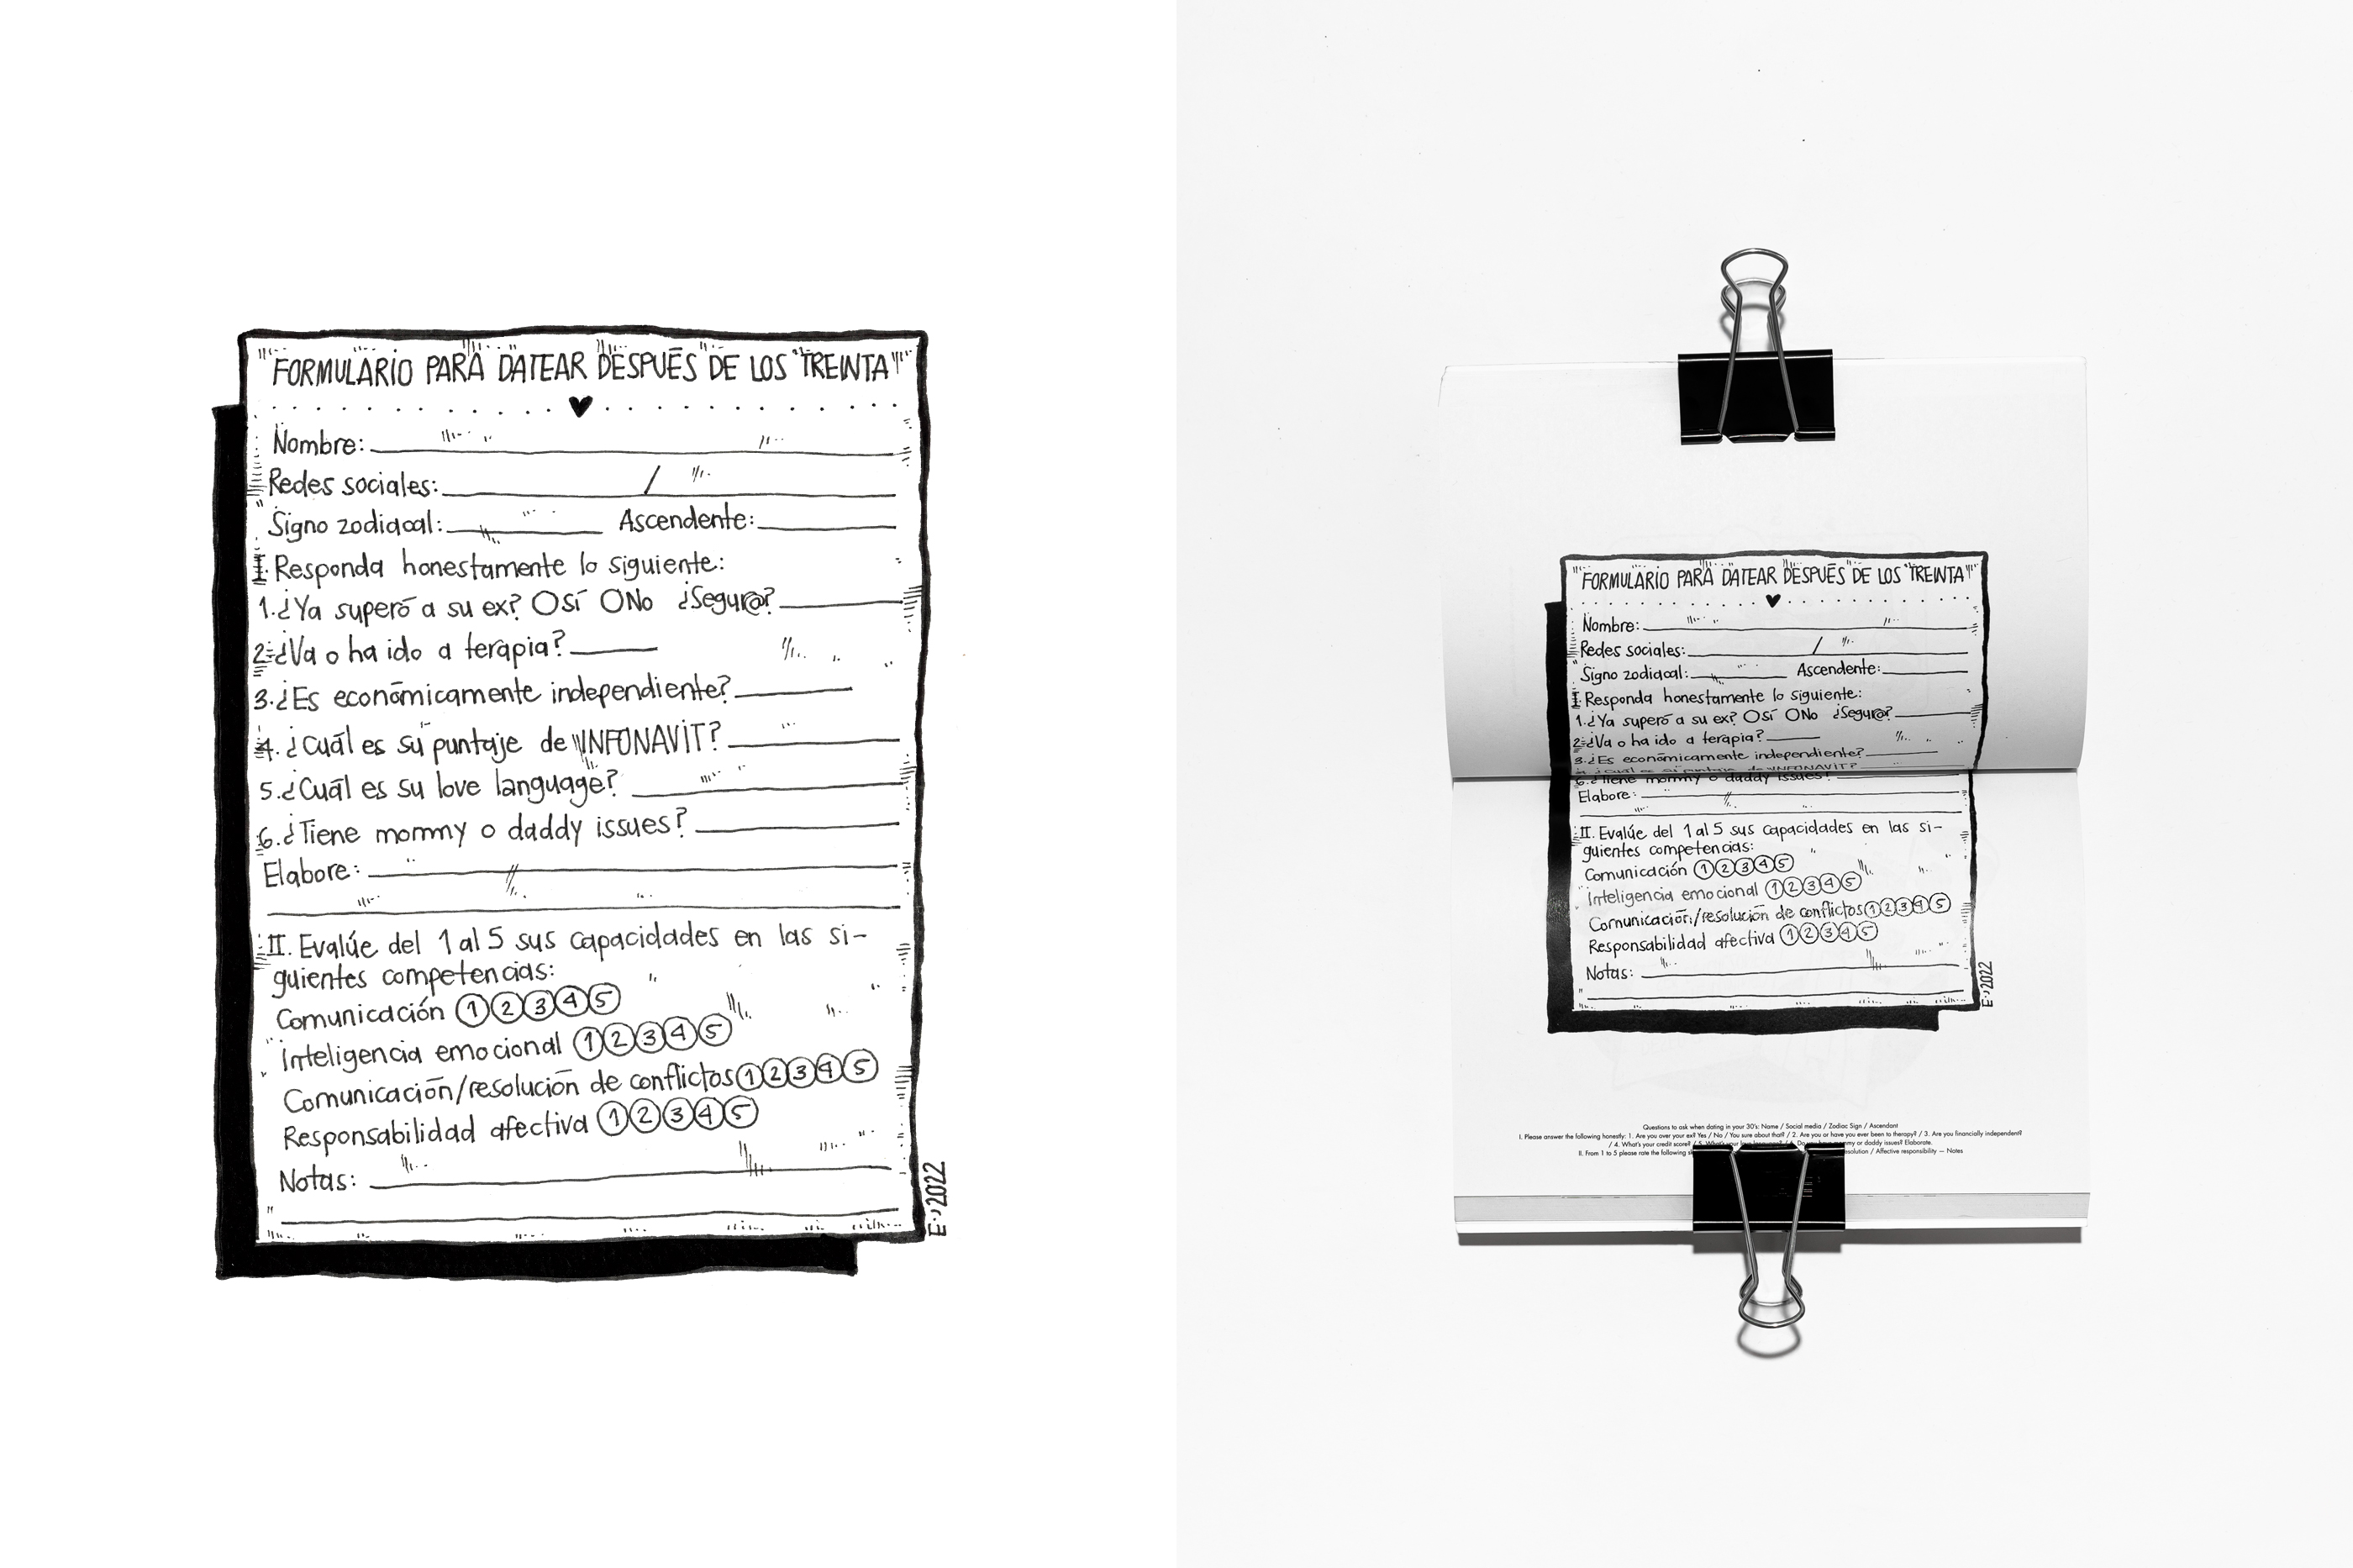 FORMULARIO PARA DATEAR DESPUÉS DE LOS TREINTA
Nombre:
Redes sociales: /
Signo zodiacal: Ascendente:
I. Responda honestamente lo siguiente:
1. ¿Ya superó a su ex? O Sí O No ¿Segur@?
2. ¿Va o ha ido a terapia?
3. ¿Es económicamente independiente?
4. ¿Cuál es su puntaje de INFONAVIT?
5. ¿Cuál es su love language?
6. ¿Tiene mommy o daddy issues?
Elabore:
II. Evalúe del 1 al 5 sus capacidades en las si-
guientes competencias:
Comunicación 1 2 3 4 5
Inteligencia emocional 1 2 3 4 5
Comunicación/resolución de conflictos 1 2 3 4 5
Responsabilidad afectiva 1 2 3 4 5
Notas:
E 2022
FORMULARIO PARA DATEAR DESPUÉS DE LOS TREINTA
Nombre:
Redes sociales: /
Signo zodiacal: Ascendente:
I. Responda honestamente lo siguiente:
1. ¿Ya superó a su ex? O Sí O No ¿Segur@?
2. ¿Va o ha ido a terapia?
3. ¿Es económicamente independiente?
4. ¿Cuál es su puntaje de INFONAVIT?
6. ¿Tiene mommy o daddy issues?
Elabore:
II. Evalúe del 1 al 5 sus capacidades en las si-
guientes competencias:
Comunicación 1 2 3 4 5
Inteligencia emocional 1 2 3 4 5
Comunicación/resolución de conflictos 1 2 3 4 5
Responsabilidad afectiva 1 2 3 4 5
Notas:
E 2022
Questions to ask when dating in your 30's: Name / Social media / Zodiac Sign / Ascendant
I. Please answer the following honestly: 1. Are you over your ex? Yes / No / You sure about that? / 2. Are you or have you ever been to therapy? / 3. Are you financially independent?
/ 4. What's your credit score? / 5. What's your love language? / 6. Do you have mommy or daddy issues? Elaborate.
II. From 1 to 5 please rate the following / Affective responsibility — Notes